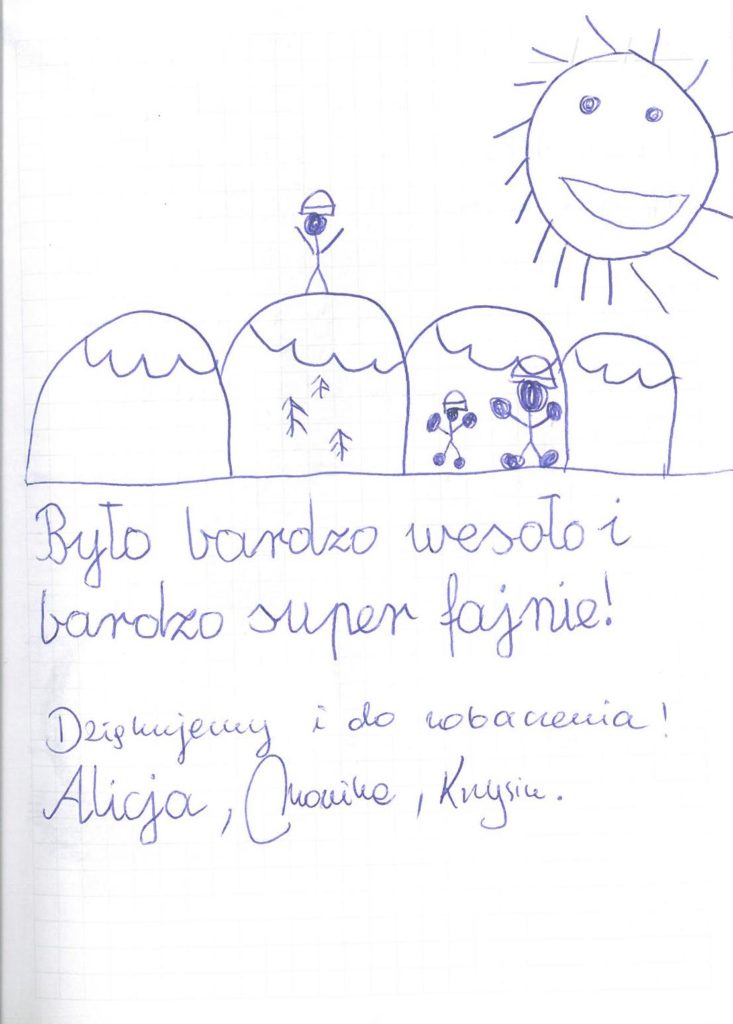 Było bardzo wesoło i
bardzo super fajnie!
Dziękujemy i do zobaczenia!
Alicja, Monika, Krzysiu.